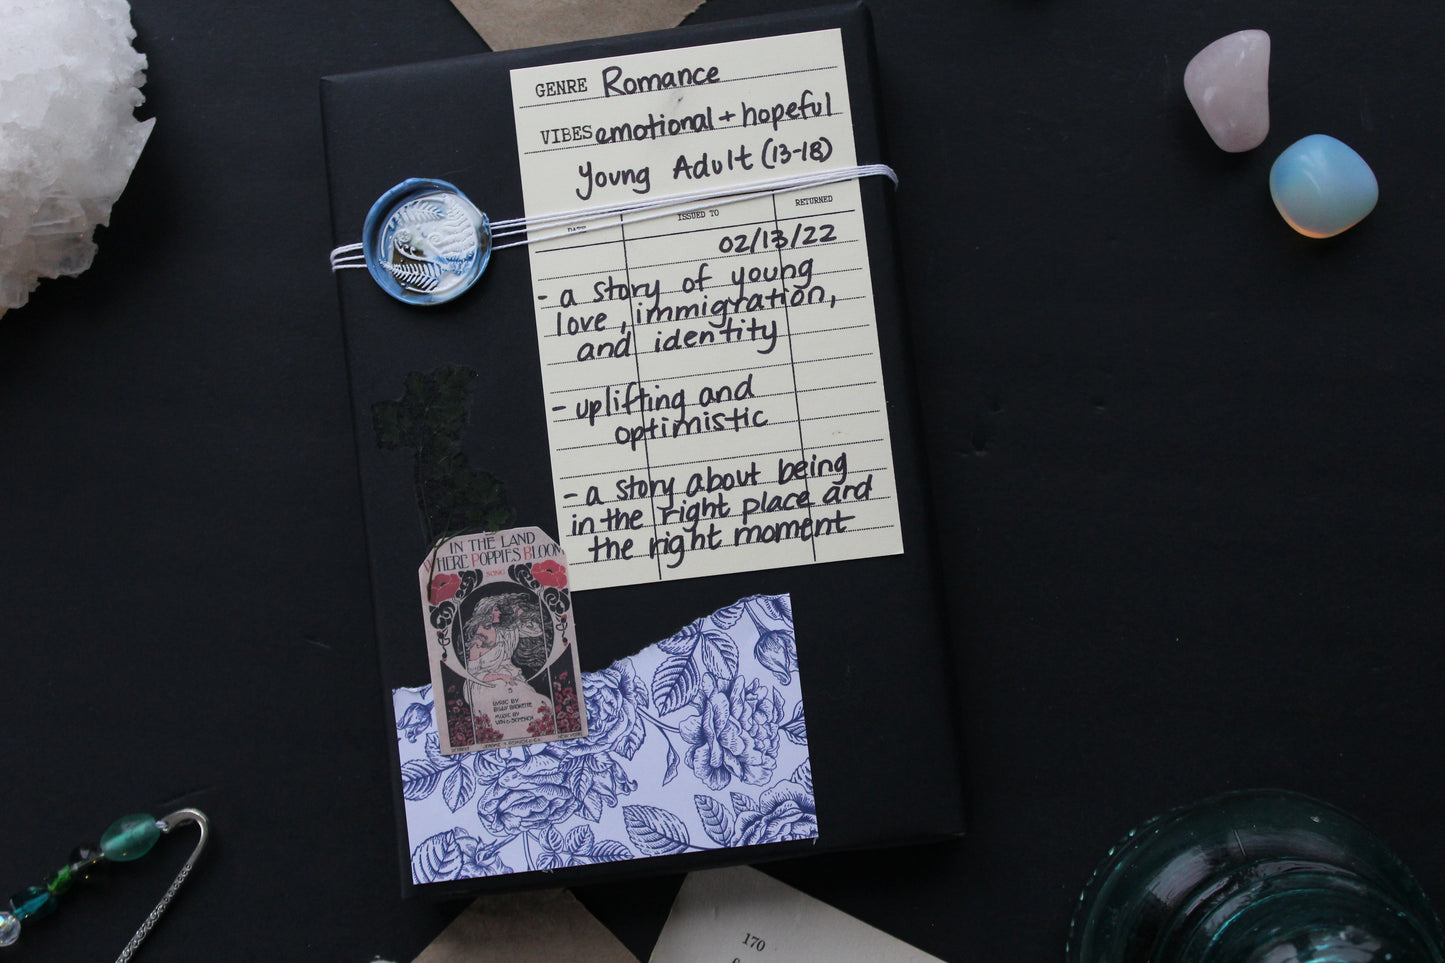 GENRE Romance
VIBES emotional + hopeful
Young Adult (13-18)
ISSUED TO
RETURNED
02/13/22
- a story of young
love, immigration,
and identity
- uplifting and
optimistic
- a story about being
in the right place and
the right moment
IN THE LAND
WHERE POPPIES BLOOM
SONG
LYRIC BY
MUSIC BY
170